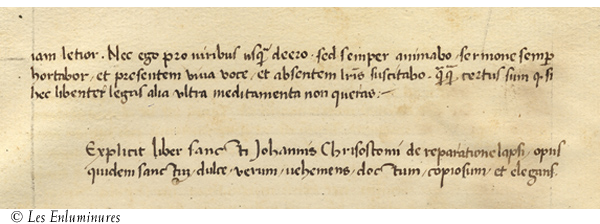 iam letior. Nec ego pro viribus usq̄ deero. sed semper animabo, sermone semp̄
hortabor, et presentem viva voce, et absentem lr̄is suscitabo. q̄q̄ certus sum q. si
hec libenter legas alia ultra meditamenta non queras:-
Explicit liber sancti Johannis Chrisostomi de reparatione lapsi, opus
quidem sanctum, dulce, verum, vehemens, doctum, copiosum, et elegans.
© Les Enluminures